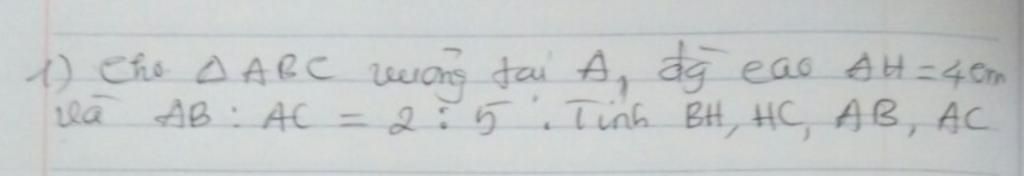 1) Cho △ABC vuông tại A, đg cao AH = 4cm
và AB : AC = 2 : 5. Tính BH, HC, AB, AC